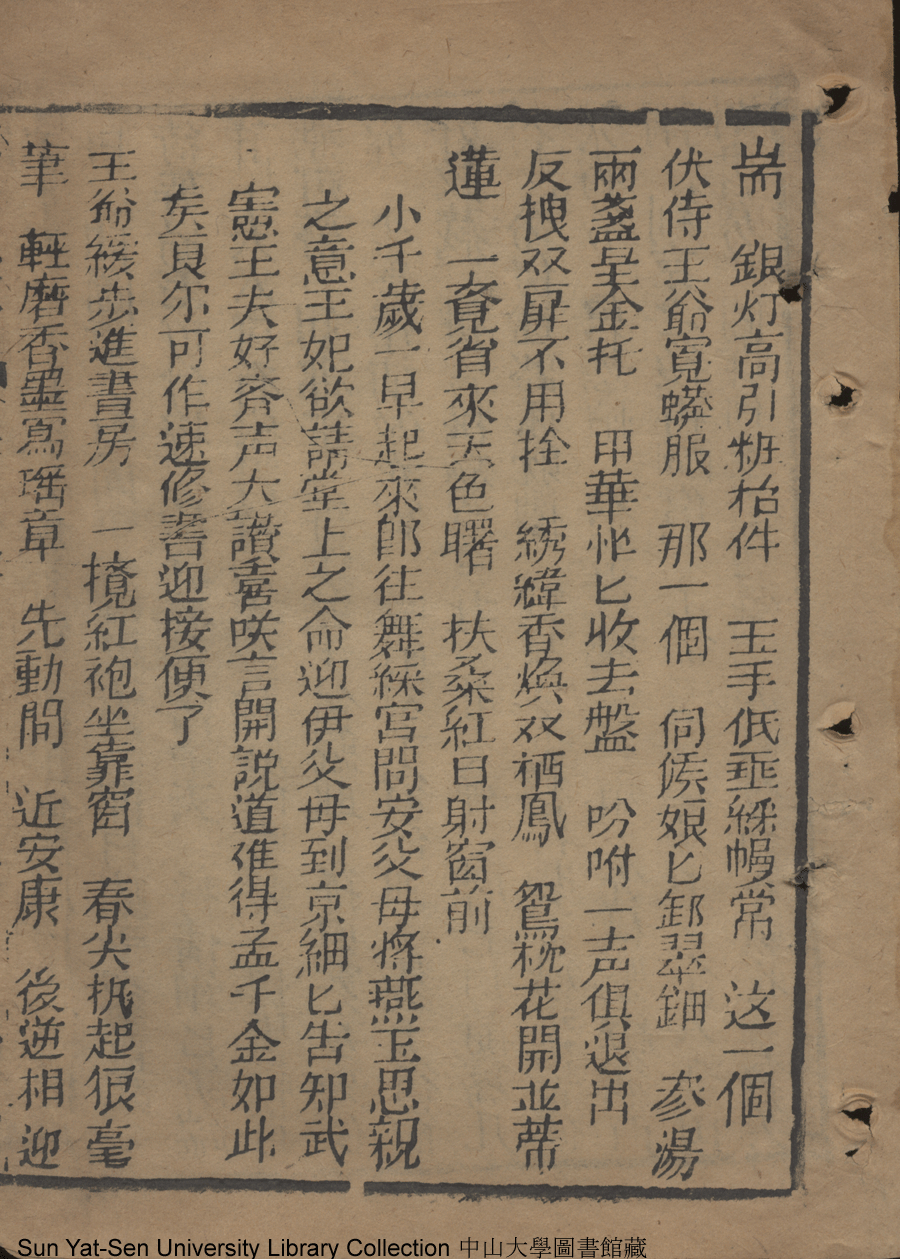 耑　銀灯高引粧枱件　玉手低垂綵幔常　这一個
伏侍王爺寬蟒服　那一個　伺候娘匕卸翠鈿　参湯
兩盞呈金托　用華怭匕收去盤　吩咐一声俱退出
反拽双扉不用拴　綉緯香煥双栖鳳　鴛枕花開並蒂
蓮　一覔省來天色曙　扶桑紅日射窗前
小千歲一早起來即往舞綵宮問安父母將燕玉思親
之意王妃欲請堂上之命迎伊父母到京細匕告知武
憲王夫好齊声大讃喜咲言開說道准得孟千金如此
矣頁尔可作速修書迎接便了
王爺緩步進書房　一撓紅袍坐靠窗　春尖执起狠毫
筆　輕磨香墨寫瑶章　先動問　近安康　後逆相迎
Sun Yat-Sen University Library Collection 中山大學圖書館藏